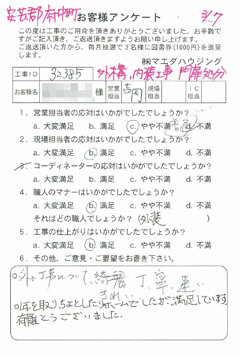 安芸郡府中町
お客様アンケート
9/7
この度は工事のご用命を頂きありがとうございました。お手数で
すがご記入頂き、ご返送頂きますようお願い申し上げます。
ご返送頂いた方から、毎月抽選で3名様に図書券(1000円)を進呈
します。
㈱マエダハウジング
工事ID 32385 外構、内装工事
お客様名 様 営業担当 現場担当 IC担当
1. 営業担当者の応対はいかがでしたでしょうか?
a. 大変満足 b. 満足 c. やや不満 d. 不満
2. 現場担当者の応対はいかがでしたでしょうか?
a. 大変満足 b. 満足 c. やや不満 d. 不満
3. コーディネーターの応対はいかがでしたでしょうか?
a. 大変満足 b. 満足 c. やや不満 d. 不満
4. 職人のマナーはいかがでしたでしょうか?
a. 大変満足 b. 満足 c. やや不満 d. 不満
それはどの職人でしょうか? (外装)
5. 工事の仕上がりはいかがでしたでしょうか?
a. 大変満足 b. 満足 c. やや不満 d. 不満
6. その他、ご意見・ご要望をお書き下さい。
工事について、綺麗 丁寧 早い
満足しています
有難とうございました。